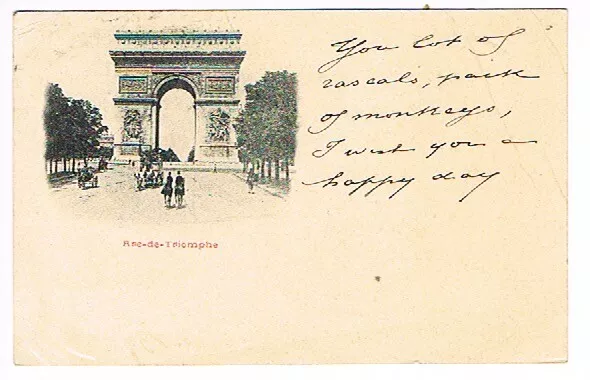 You lot of
rascals, pack
of monkeys,
I wish you a
happy day
Arc-de-Triomphe